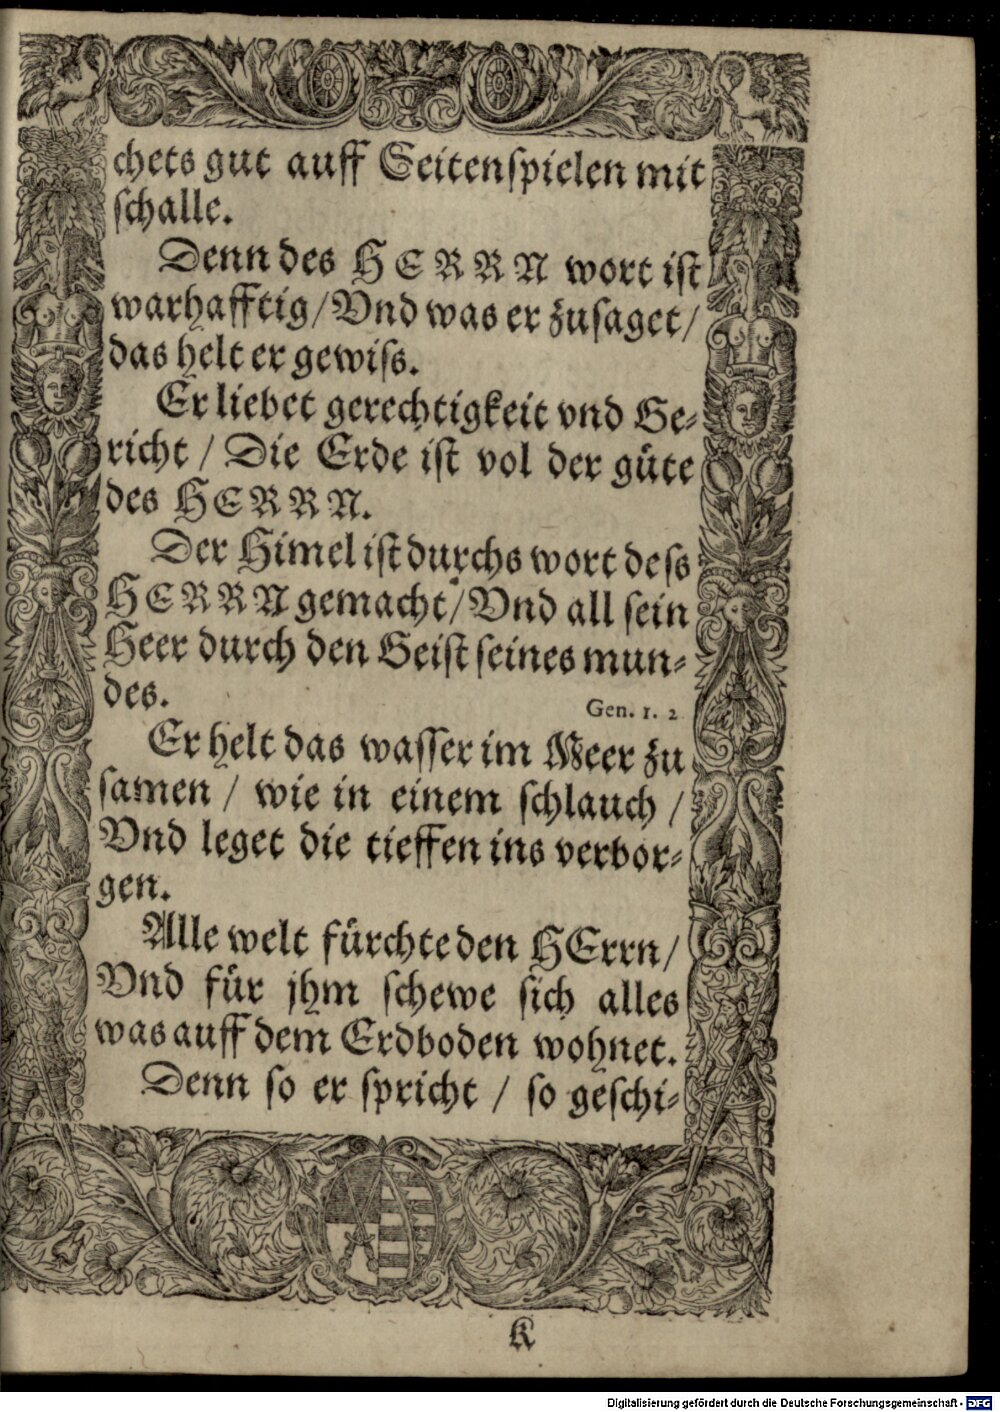 chets gut auff Seitenspielen mit
schalle.
Denn des HERRN wort ist
warhafftig/Vnd was er zusaget/
das helt er gewiss.
Er liebet gerechtigkeit vnd Ge-
richt / Die Erde ist vol der güte
des HERRN.
Der Himel ist durchs wort dess
HERRN gemacht/Vnd all sein
Heer durch den Geist seines mun-
des.
Gen. 1. 2
Er helt das wasser im Meer zu
samen / wie in einem schlauch /
Vnd leget die tieffen ins verbor-
gen.
Alle welt fürchte den HErrn/
Vnd für jhm schewe sich alles
was auff dem Erdboden wohnet.
Denn so er spricht / so geschi-
K
Digitalisierung gefördert durch die Deutsche Forschungsgemeinschaft - DFG